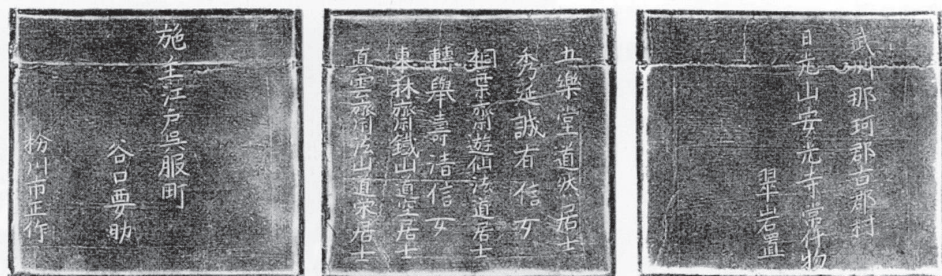 武州那珂郡古郡村
日光山安光寺常什物
翠岩置
五樂堂道居士
秀延誠有信女
桐葉齋遊仙法道居士
轉譽壽清信女
東林齋鐵山道空居士
直雲齋法山道榮居士
施主江戸呉服町
谷口要助
粉川市正作